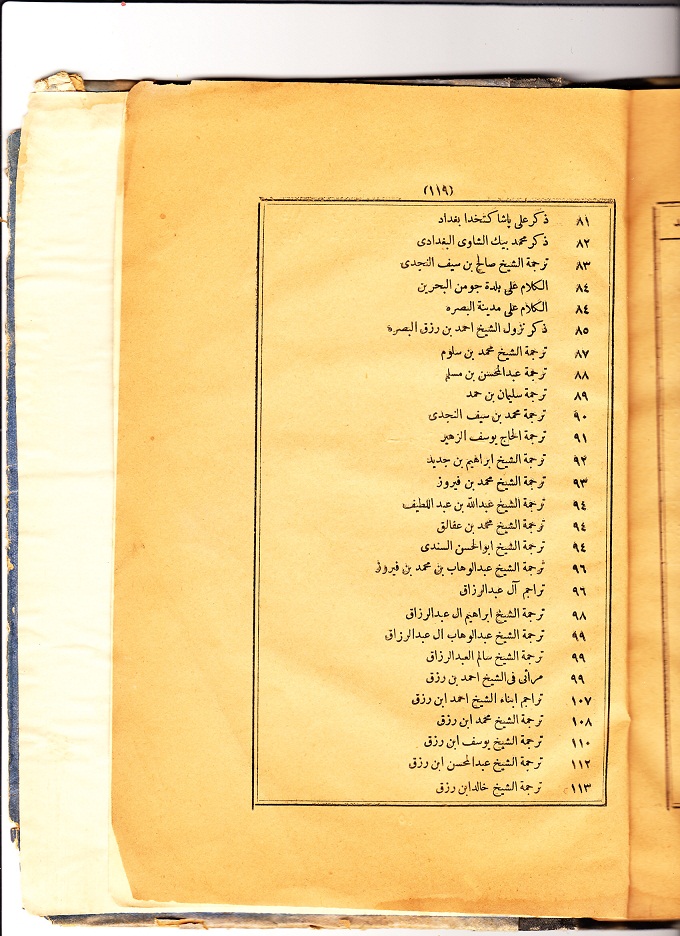 (١١٩)
٨١ ذكر على پاشا كتخدا بغداد
٨٢ ذكر محمد بيك الشاوى البغدادى
٨٣ ترجمة الشيخ صالح بن سيف النجدى
٨٤ الكلام على بلدة جو من البحرين
٨٤ الكلام على مدينة البصره
٨٥ ذكر نزول الشيخ احمد بن رزق البصرة
٨٧ ترجمة الشيخ محمد بن سلوم
٨٨ ترجمة عبدالمحسن بن مسلم
٨٩ ترجمة سليمان بن حمد
٩٠ ترجمة محمد بن سيف النجدى
٩١ ترجمة الحاج يوسف الزهير
٩٢ ترجمة الشيخ ابراهيم بن جديد
٩٣ ترجمة الشيخ محمد بن فيروز
٩٤ ترجمة الشيخ عبدالله بن عبد اللطيف
٩٤ ترجمة الشيخ محمد بن عفالق
٩٤ ترجمة الشيخ ابوالحسن السندى
٩٦ ترجمة الشيخ عبدالوهاب بن محمد بن فيروز
٩٦ تراجم آل عبدالرزاق
٩٨ ترجمة الشيخ ابراهيم ال عبدالرزاق
٩٩ ترجمة الشيخ عبدالوهاب ال عبدالرزاق
٩٩ ترجمة الشيخ سالم العبدالرزاق
٩٩ مراثى فى الشيخ احمد بن رزق
١٠٧ تراجم ابناء الشيخ احمد ابن رزق
١٠٨ ترجمة الشيخ محمد ابن رزق
١١٠ ترجمة الشيخ يوسف ابن رزق
١١٢ ترجمة الشيخ عبدالمحسن ابن رزق
١١٣ ترجمة الشيخ خالد ابن رزق